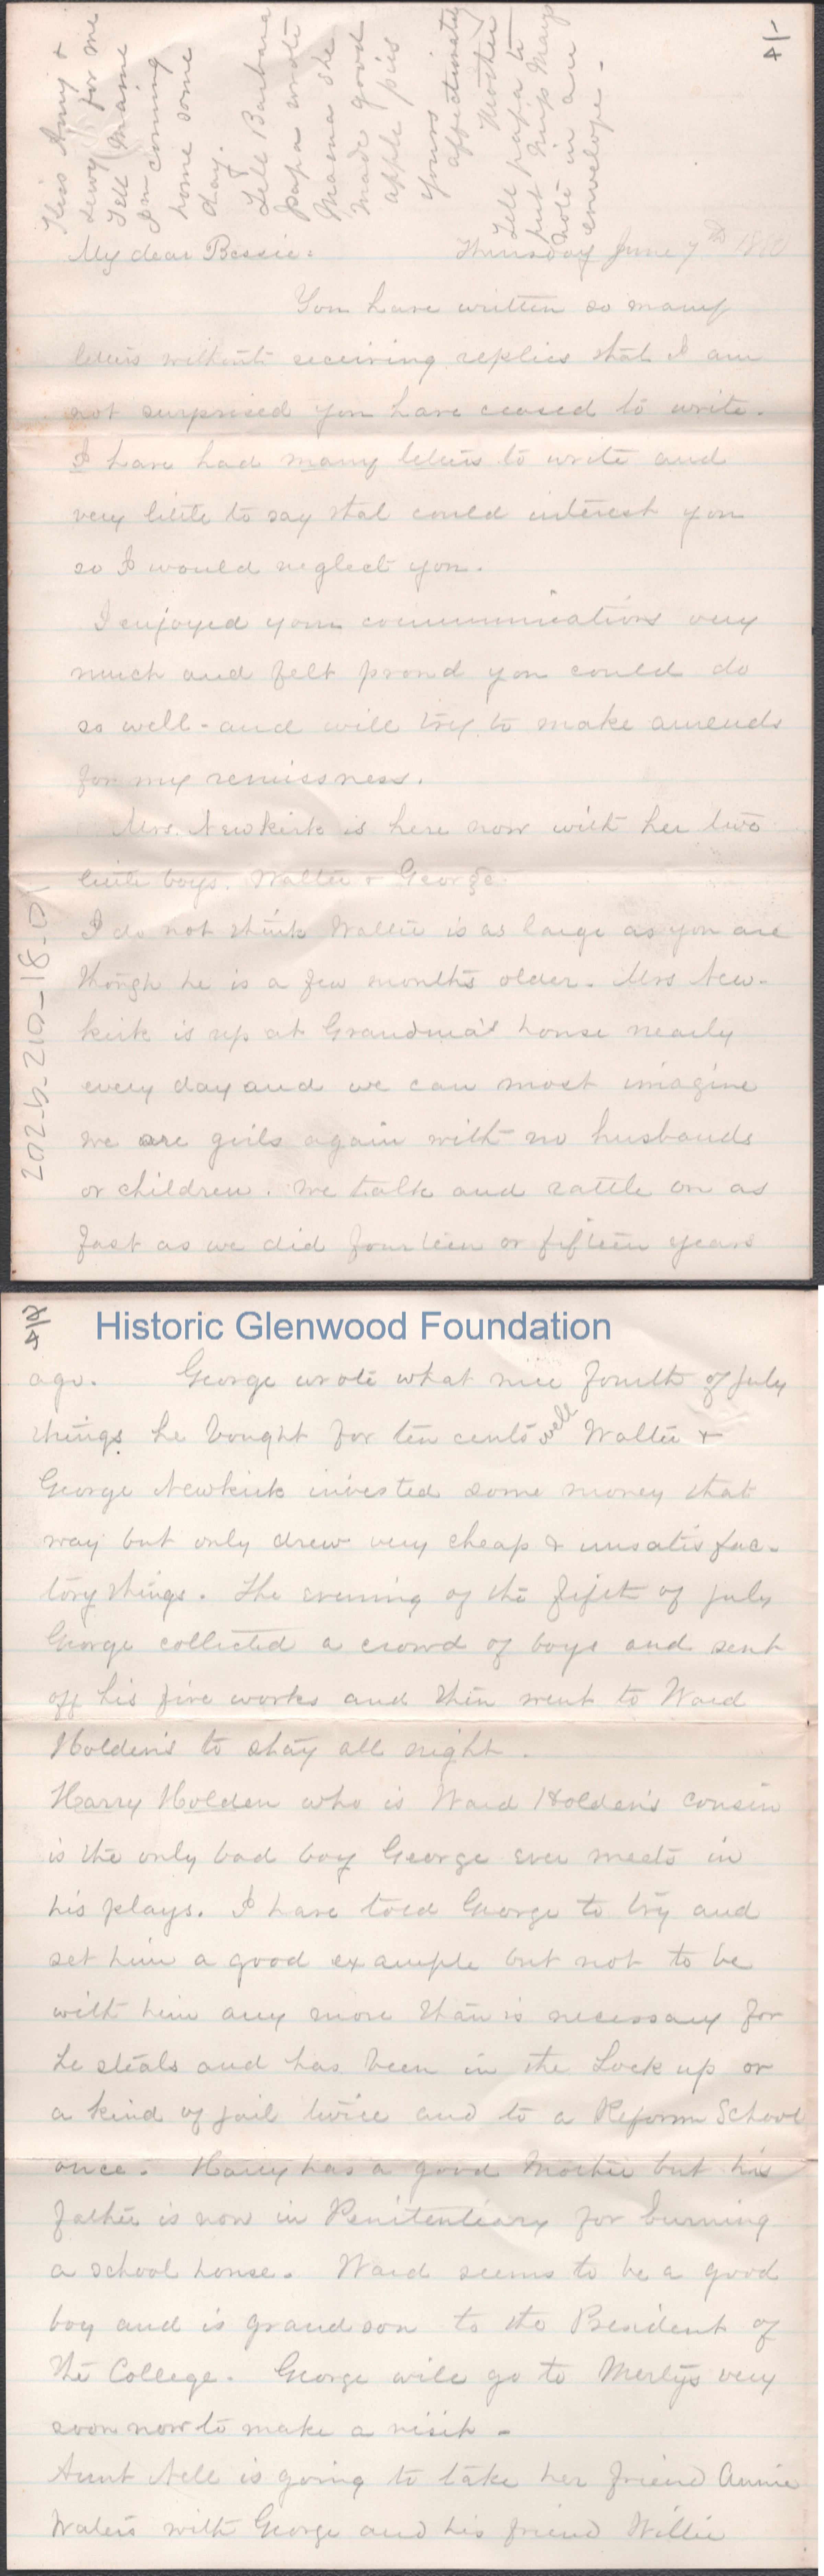 Kiss Amy &
Dewy for me
Tell Mamie
I'm coming
home some
day.
Tell Barbara
Papa wrote
Mama she
made good
apple pies
yours
affectionately
Mother
Tell papa to
put Miss Mary
note in an
envelope.
1/4
My dear Bessie. Thursday June 7th 1880
You have written so many
letters without receiving replies that I am
not surprised you have ceased to write.
I have had many letters to write and
very little to say that could interest you
so I would neglect you.
I enjoyed your communications very
much and felt proud you could do
so well - and will try to make amends
for my remissness.
Mrs. Newkirk is here now with her two
little boys. Walter & George.
I do not think Walter is as large as you are
though he is a few months older. Mrs New-
kirk is up at Grandma's house nearly
every day and we can most imagine
we are girls again with no husbands
or children. We talk and rattle on as
fast as we did fourteen or fifteen years
2025-210-18-01
2/4
Historic Glenwood Foundation
ago. George wrote what nice fourth of July
things he bought for ten cents well Walter &
George Newkirk invested some money that
way but only drew very cheap & unsatisfac-
tory things. The evening of the fifth of July
George collected a crowd of boys and sent
off his fire works and then went to Ward
Holden's to stay all night.
Harry Holden who is Ward Holden's cousin
is the only bad boy George ever meets in
his plays. I have told George to try and
set him a good example but not to be
with him any more than is necessary for
he steals and has been in the Lock up or
a kind of jail twice and to a Reform School
once. Harry has a good Mother but his
father is now in Penitentiary for burning
a school house. Ward seems to be a good
boy and is grandson to the President of
the College. George will go to Merty's very
soon now to make a visit -
Aunt Nell is going to take her friend Annie
Waters with George and his friend Willie